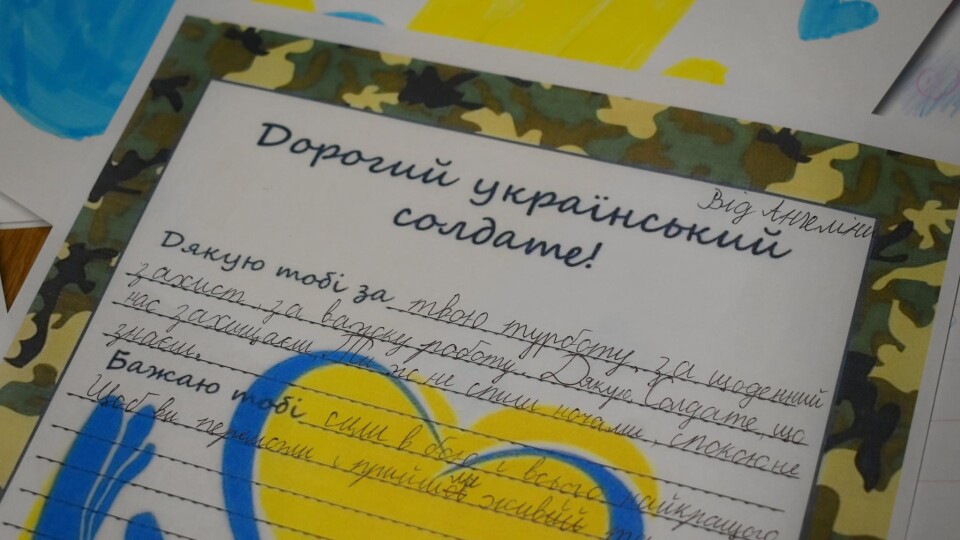 Дорогий український
солдате!
Від Ангеліни
Дякую тобі за твою турботу, за щоденний
захист, за важку роботу. Дякую, Солдате, що
нас захищаєш. Ти ж не спиш ночами, спокою не
знаєш.
Бажаю тобі сили в бою і всього найкращого
Щоб ви перемогли і прийшли живий